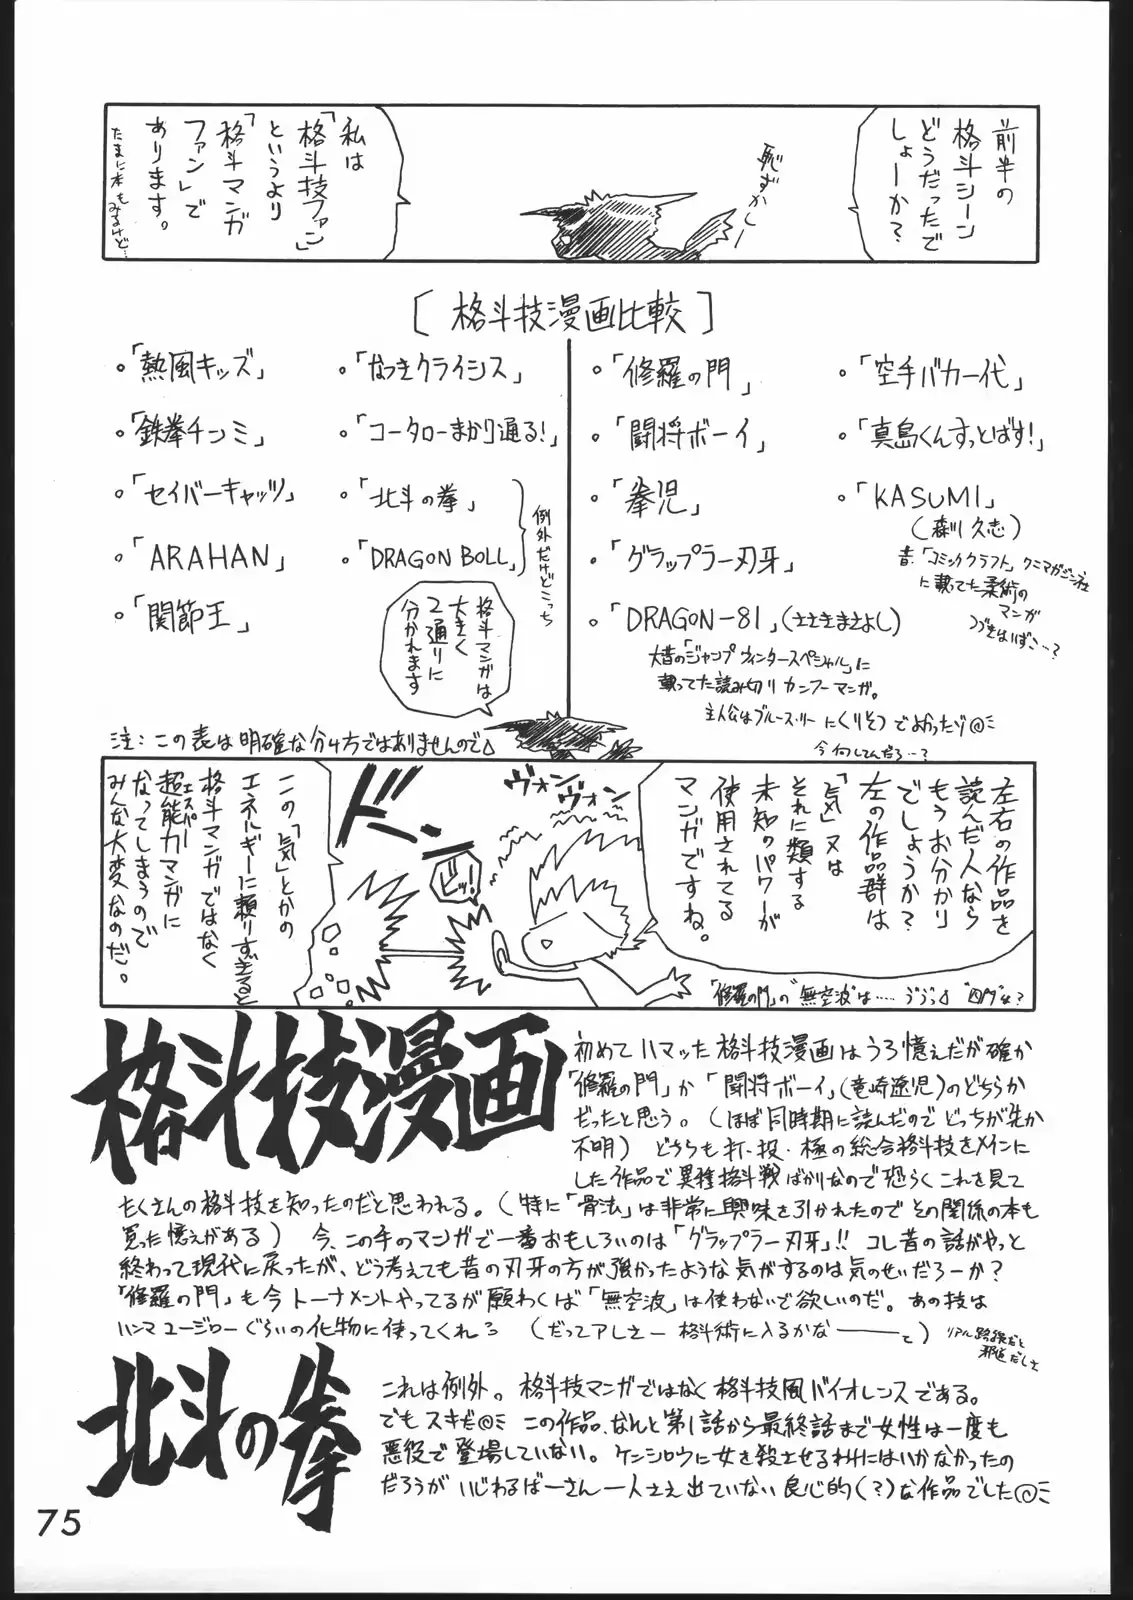 前半の
格斗シーン
どうだったで
しょーか?
恥ずかしー
私は
「格斗技ファン」
というより
「格斗マンガ
ファン」で
あります。
たまに本もみるけど…
[格斗技漫画比較]
・「熱風キッズ」
・「鉄拳チンミ」
・「セイバーキャッツ」
・「ARAHAN」
・「関節王」
・「なつきクライシス」
・「コータローまかり通る!」
・「北斗の拳」
・「DRAGON BOLL」
例外だけどこっち
・「修羅の門」
・「闘将ボーイ」
・「拳児」
・「グラップラー刃牙」
・「DRAGON-81」(ささきまさよし)
大昔の「ジャンプ ウィンタースペシャル」に
載ってた読み切りカンフーマンガ。
主人公はブルース・リーにくりそつでよかったゾ@ミ
今何してんだろ…?
・「空手バカ一代」
・「真島くんすっとばす!」
・「KASUMI」
(森川久志)
昔「コミッククラフト」クニマガジン社
に載ってた柔術の
マンガ
つづきはいずこ…?
格斗マンガは
大きく
2通りに
分かれます
注:この表は明確な分け方ではありませんので
左右の作品を
読んだ人なら
もうお分かり
でしょうか?
左の作品群は
「気」又は
それに類する
未知のパワーが
使用されてる
マンガですね。
「修羅の門」の"無空波"は……
ヴォン
ヴォン
ビッ!
ドン
この「気」とかの
エネルギーに頼りすぎると
格斗マンガではなく
超能力マンガに
エスパー
なってしまうので
みんな大変なのだ。
格斗技漫画
初めてハマッた格斗技漫画はうろ憶えだが確か
「修羅の門」か「闘将ボーイ」(竜崎遼児)のどちらか
だったと思う。(ほぼ同時期に読んだのでどっちが先か
不明)どちらも打・投・極の総合格斗技をメインに
した作品で異種格斗戦ばかりなので恐らくこれを見て
たくさんの格斗技を知ったのだと思われる。(特に「骨法」は非常に興味を引かれたのでその関係の本も
買った憶えがある)今、この手のマンガで一番おもしろいのは「グラップラー刃牙」!!コレ昔の話がやっと
終わって現代に戻ったが、どう考えても昔の刃牙の方が強かったような気がするのは気のせいだろーか?
「修羅の門」も今トーナメントやってるが願わくば「無空波」は使わないで欲しいのだ。あの技は
ハンマユージローぐらいの化物に使ってくれ (だってアレさー格斗術に入るかなーーーと)
リアル路線だと
邪道だしさ
北斗の拳
これは例外。格斗技マンガではなく格斗技風バイオレンスである。
でもスキだ@ミ この作品、なんと第1話から最終話まで女性は一度も
悪役で登場していない。ケンシロウに女を殺させるわけにはいかなかったの
だろうがいじわるばーさん一人さえ出ていない良心的(?)な作品でした@ミ
75